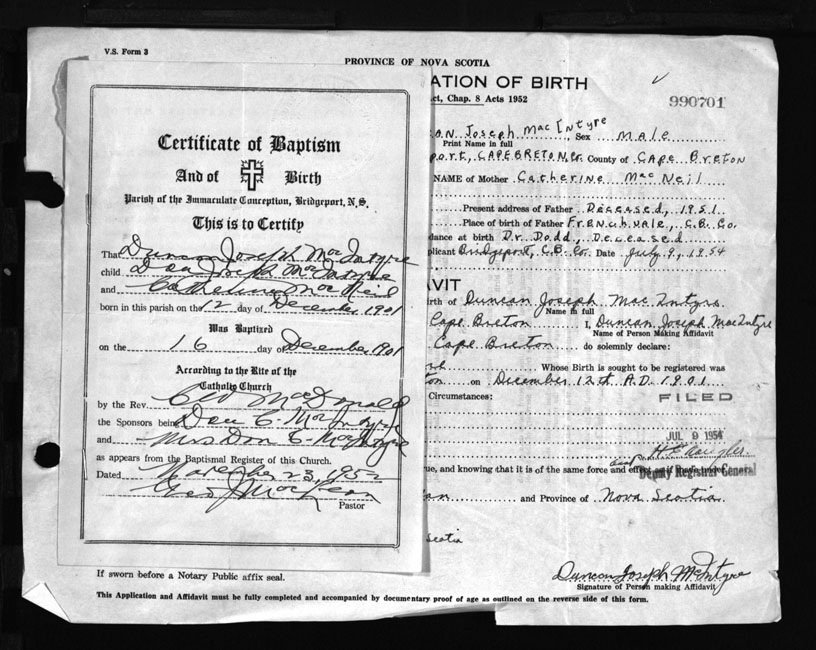 V.S. Form 3
PROVINCE OF NOVA SCOTIA
ATION OF BIRTH
ct, Chap. 8 Acts 1952
990701
Certificate of Baptism
And of Birth
Parish of the Immaculate Conception, Bridgeport, N.S.
This is to Certify
That Duncan Joseph MacIntyre
child Dan Joseph MacIntyre
and Catherine MacNeil
born in this parish on the 12 day of December 1901
Was Baptized
on the 16 day of December 1901
According to the Rite of the
Catholic Church
by the Rev. MacDonald
the Sponsors being Dan C. MacIntyre
and Mrs Dan C. MacIntyre
as appears from the Baptismal Register of this Church.
Dated November 23, 1952
Geo J MacLean
Pastor
an Joseph MacIntyre Sex male
Print Name in full
port, CAPE BRETON Co. County of Cape Breton
NAME of Mother Catherine MacNeil
Present address of Father Deceased, 1951
Place of birth of Father Frenchvale, C.B. Co.
dance at birth Dr. Dodd, Deceased
plicant Bridgeport, C.B. Co. Date July 9, 1954
AVIT
irth of Duncan Joseph MacIntyre
Name in full
Cape Breton I, Duncan Joseph MacIntyre
Name of Person Making Affidavit
Cape Breton do solemnly declare:
Whose Birth is sought to be registered was
ton on December 12th A.D. 1901
Circumstances:
FILED
JUL 9 1954
Deputy Registrar General
ue, and knowing that it is of the same force and effect as if made under
and Province of Nova Scotia
Scotia
Duncan Joseph McIntyre
Signature of Person making Affidavit
If sworn before a Notary Public affix seal.
This Application and Affidavit must be fully completed and accompanied by documentary proof of age as outlined on the reverse side of this form.